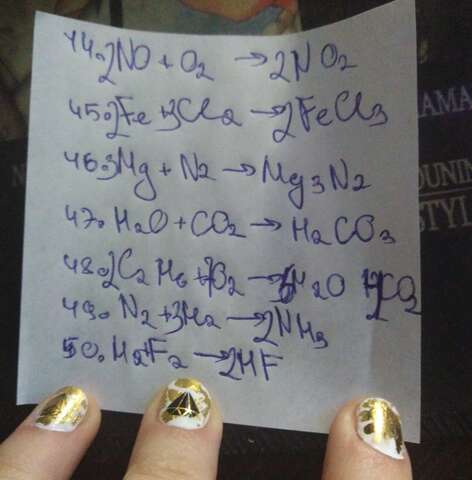 44. 2NO + O2 → 2NO2
45. 2Fe + 3Cl2 → 2FeCl3
46. 3Mg + N2 → Mg3N2
47. H2O + CO2 → H2CO3
48. 2C2H6 + 7O2 → 6H2O + 4CO2
49. N2 + 3H2 → 2NH3
50. H2 + F2 → 2HF
AMA
STYL